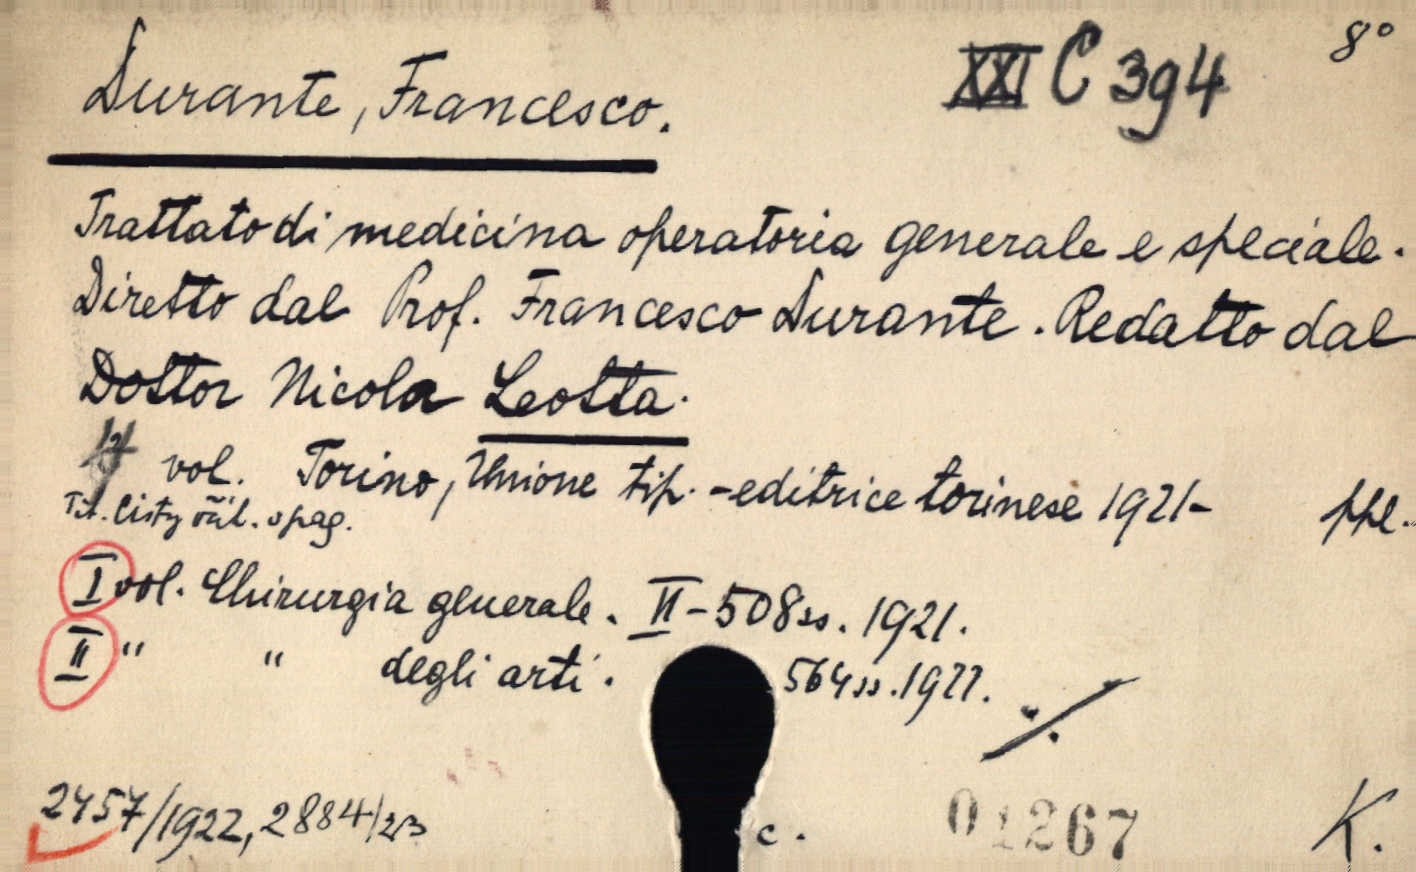 Durante, Francesco.
XXI C 394
8°
Trattato di medicina operatoria generale e speciale.
Diretto dal Prof. Francesco Durante. Redatto dal
Dottor Nicola Leotta.
vol. Torino, Unione tip.-editrice torinese 1921- ppl.
I vol. Chirurgia generale. II-508ss. 1921.
II " " degli arti. 564ss. 1922.
2457/1922, 2884/23
c.
01267
K.